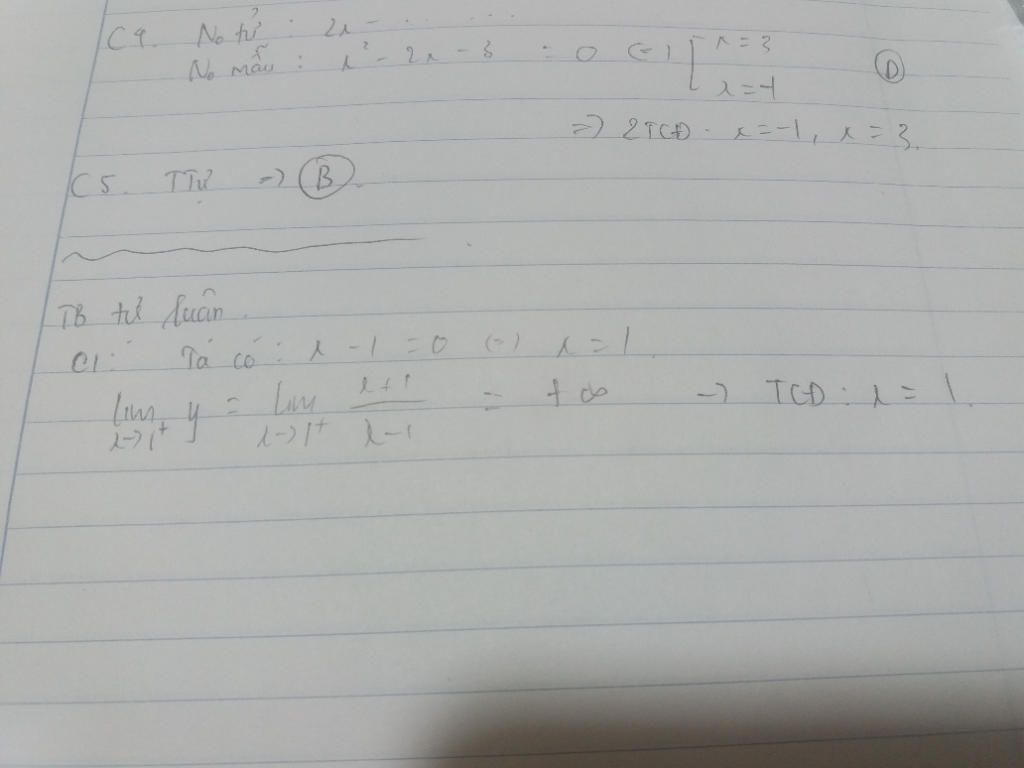 C4. No tử : 2x - ... ...
No mẫu : x² - 2x - 3 = 0 (=) [ x = 3
x = -1
D
=> 2TCĐ . x = -1, x = 3.
C5. TTự => B.
TB tự luân.
C1: Ta có : x - 1 = 0 (=) x = 1.
lim x->1⁺ y = lim x->1⁺ (x+1)/(x-1) = +∞ -> TCĐ : x = 1.